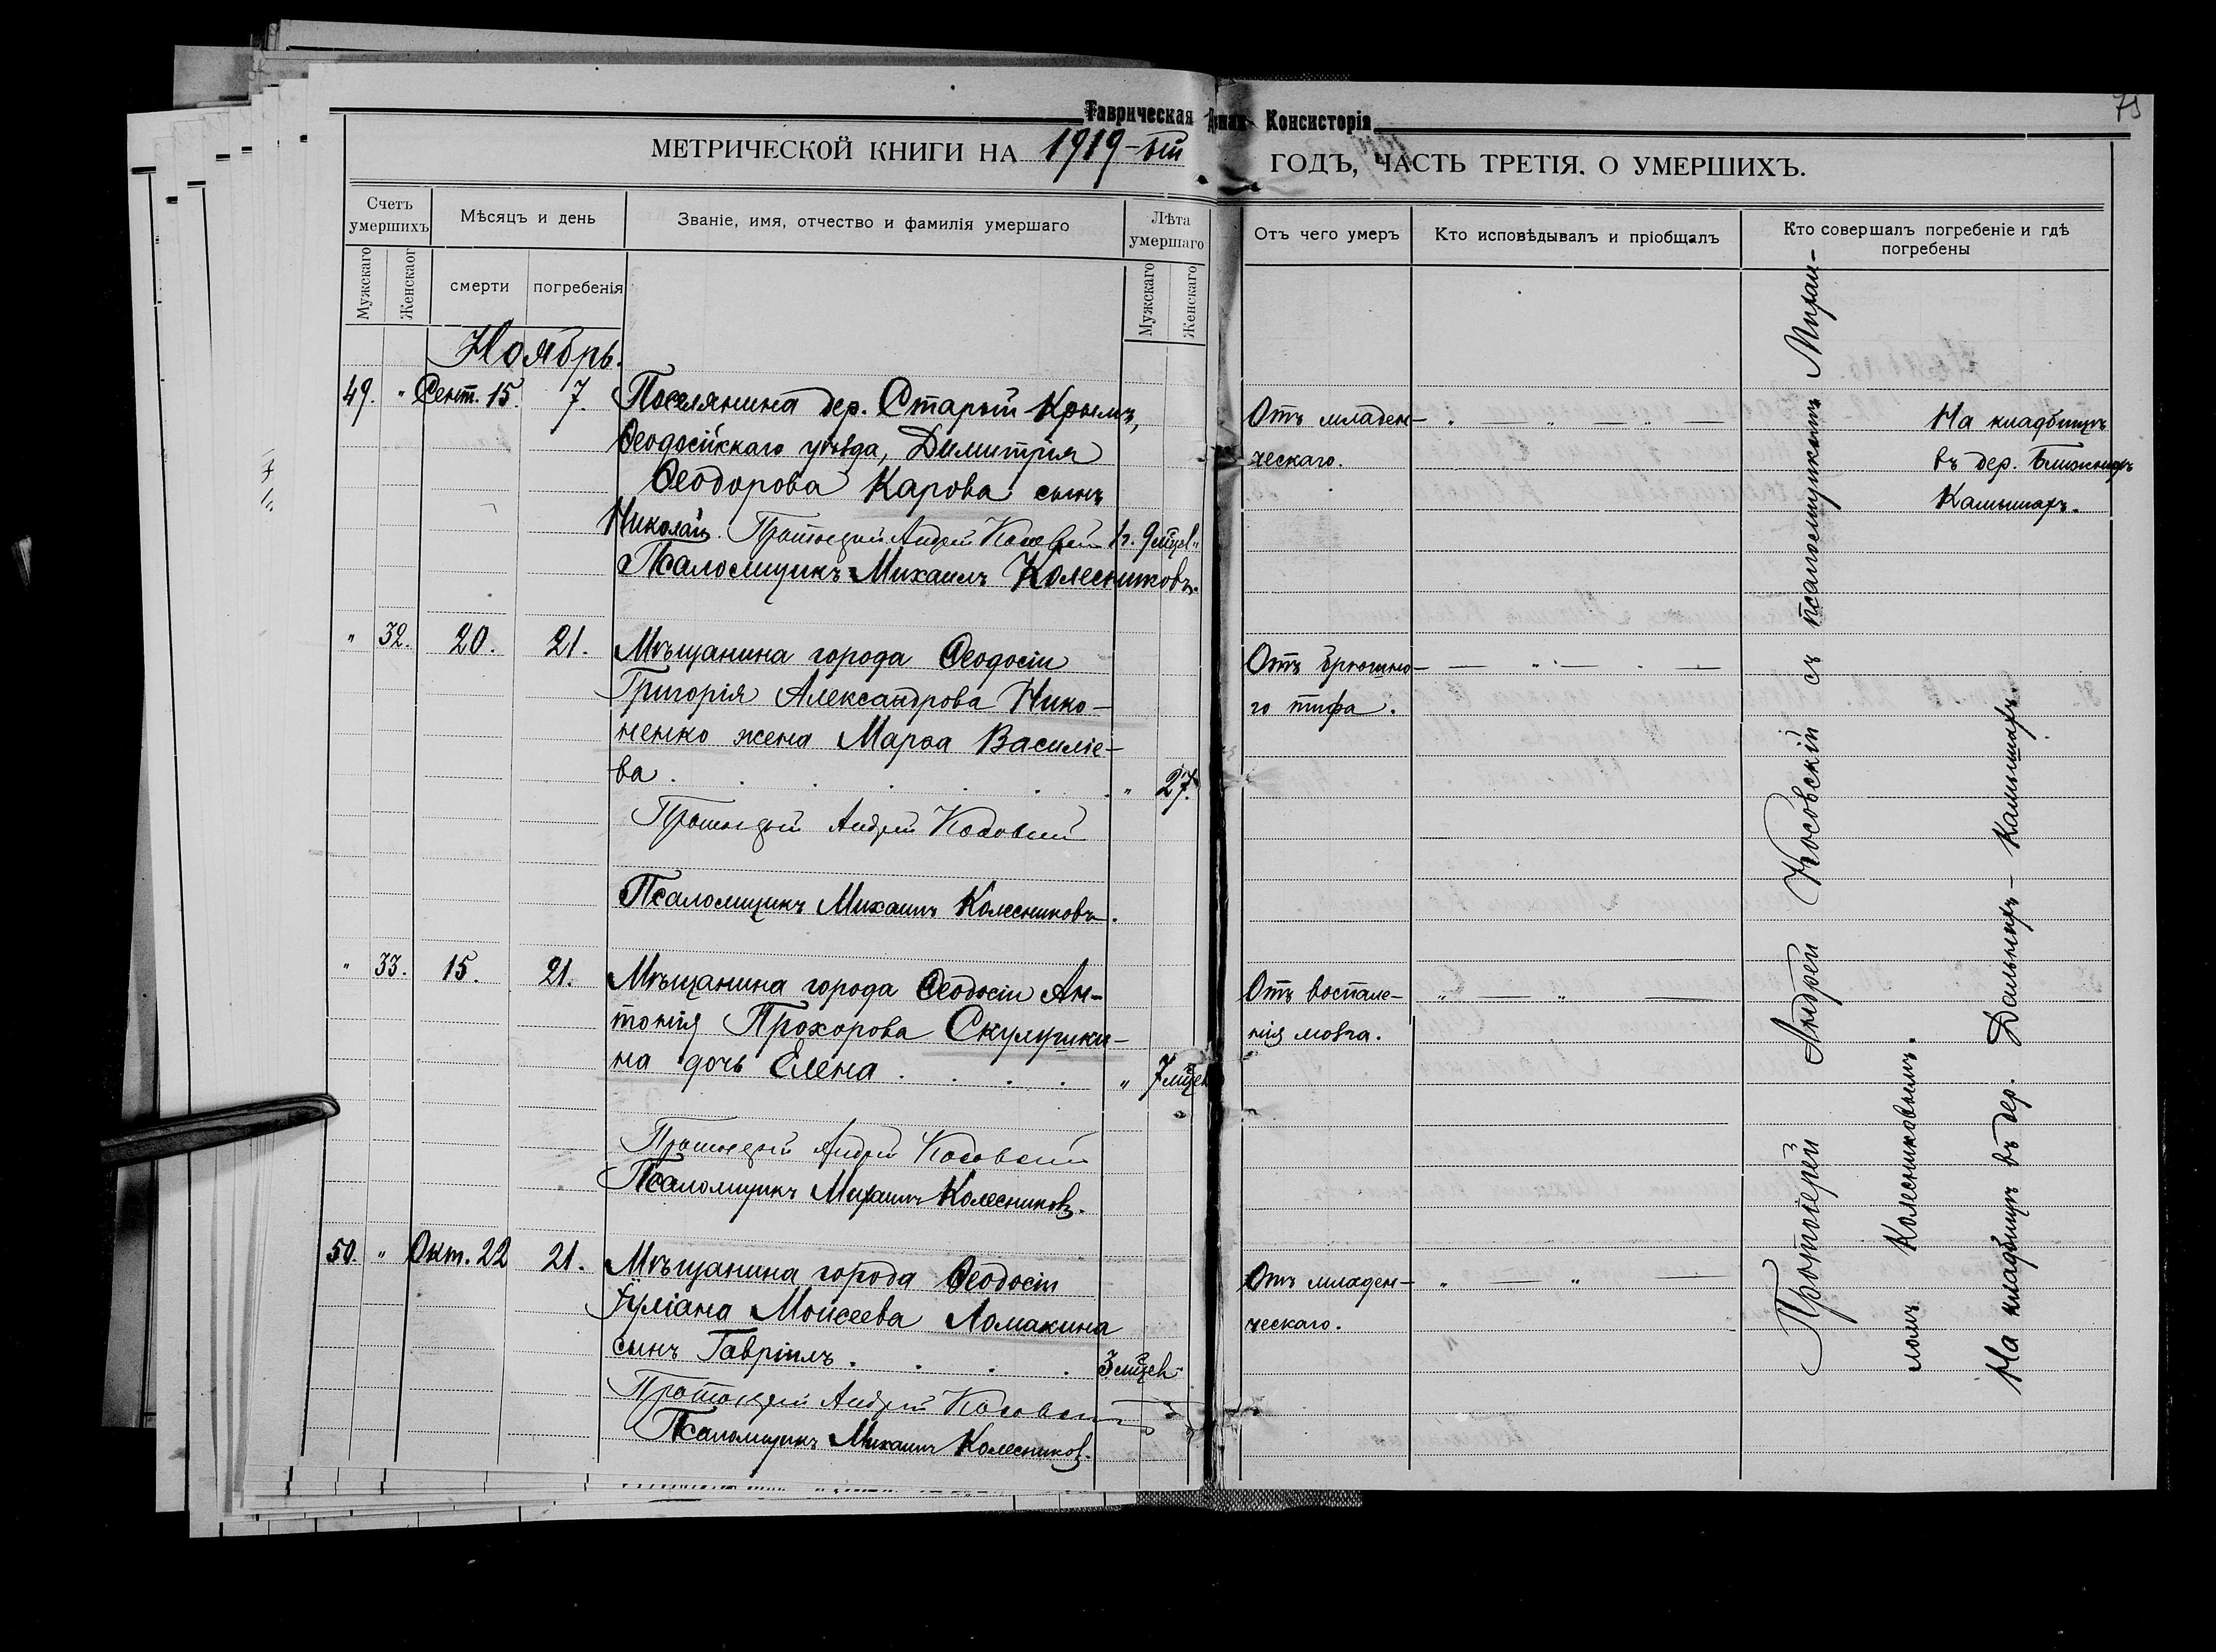 75
Таврическая Консисторія
МЕТРИЧЕСКОЙ КНИГИ НА 1919-ый ГОДЪ, ЧАСТЬ ТРЕТІЯ. О УМЕРШИХЪ.
Счетъ умершихъ
Мужскаго
Женскаог
Мѣсяцъ и день
смерти
погребенія
Званіе, имя, отчество и фамилія умершаго
Лѣта умершаго
Мужскаго
Женскаго
Отъ чего умеръ
Кто исповѣдывалъ и пріобщалъ
Кто совершалъ погребеніе и гдѣ
погребены
Ноябрь.
49. " Сент. 15. 7. Поселянина дер. Старый Крымъ,
Ѳеодосійскаго уѣзда, Димитрія
Ѳеодорова Карова сынъ
Николай. Протоіерей Андрей Косовскій 1 г. 9 мцев"
Псаломщикъ Михаилъ Колесниковъ.
Отъ младен-
ческаго.
На кладбищѣ
въ дер. Ближнихъ
Камышахъ.
" 32. 20. 21. Мѣщанина города Ѳеодосіи
Григорія Александрова Нико-
ненко жена Марѳа Василіе-
ва. " 27.
Протоіерей Андрей Косовскій
Псаломщикъ Михаилъ Колесниковъ.
Отъ брюшно-
го тифа.
" 33. 15. 21. Мѣщанина города Ѳеодосіи Ан-
тонія Прохорова Скулушки-
на дочь Елена . . . . " 7 мцев
Протоіерей Андрей Косовскій
Псаломщикъ Михаилъ Колесниковъ.
Отъ воспале-
нія мозга.
50. " Окт. 22 21. Мѣщанина города Ѳеодосіи
Іуліана Моисеева Ломакина
сынъ Гавріилъ . . . . 3 мцев "
Протоіерей Андрей Косовскій
Псаломщикъ Михаилъ Колесниковъ.
Отъ младен-
ческаго.
Протоіерей Андрей Косовскій съ псаломщикомъ Михаи-
ломъ Колесниковымъ.
На кладбищѣ въ дер. Дальнихъ-Камышахъ.